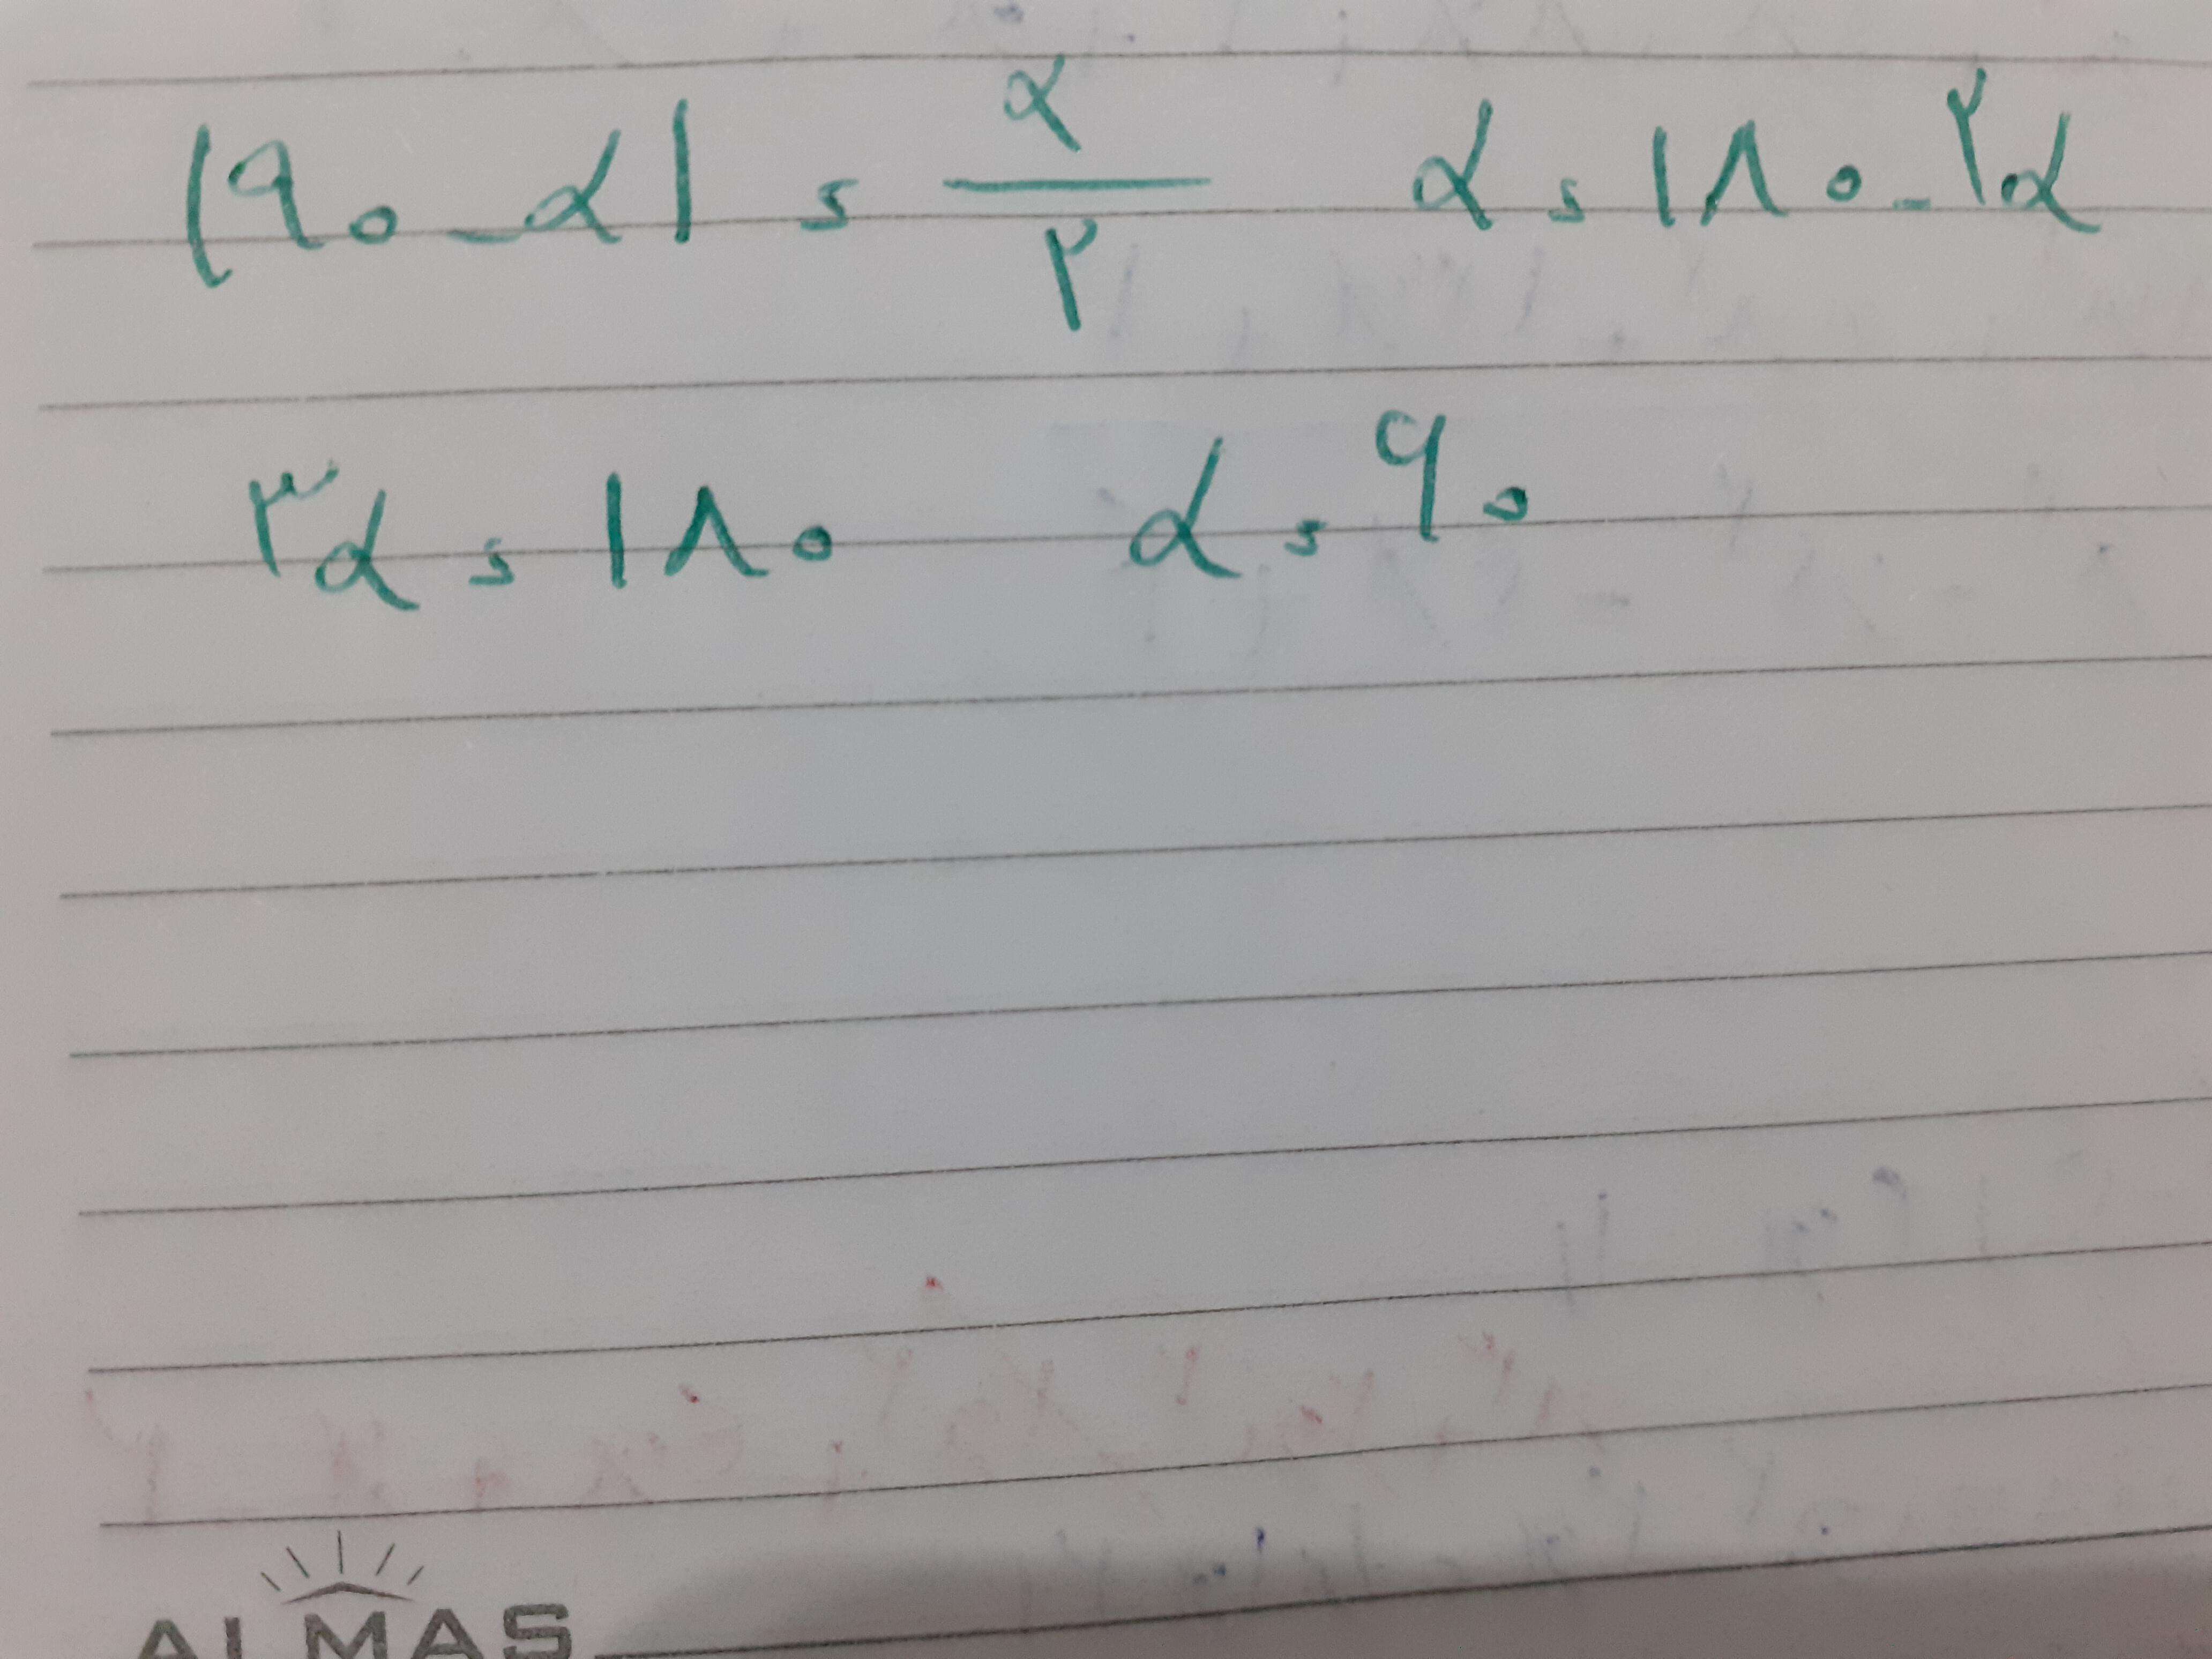 |۹۰ - α| = α/۲  α = ۱۸۰ - ۲α
۳α = ۱۸۰  α = ۹۰
ALMAS